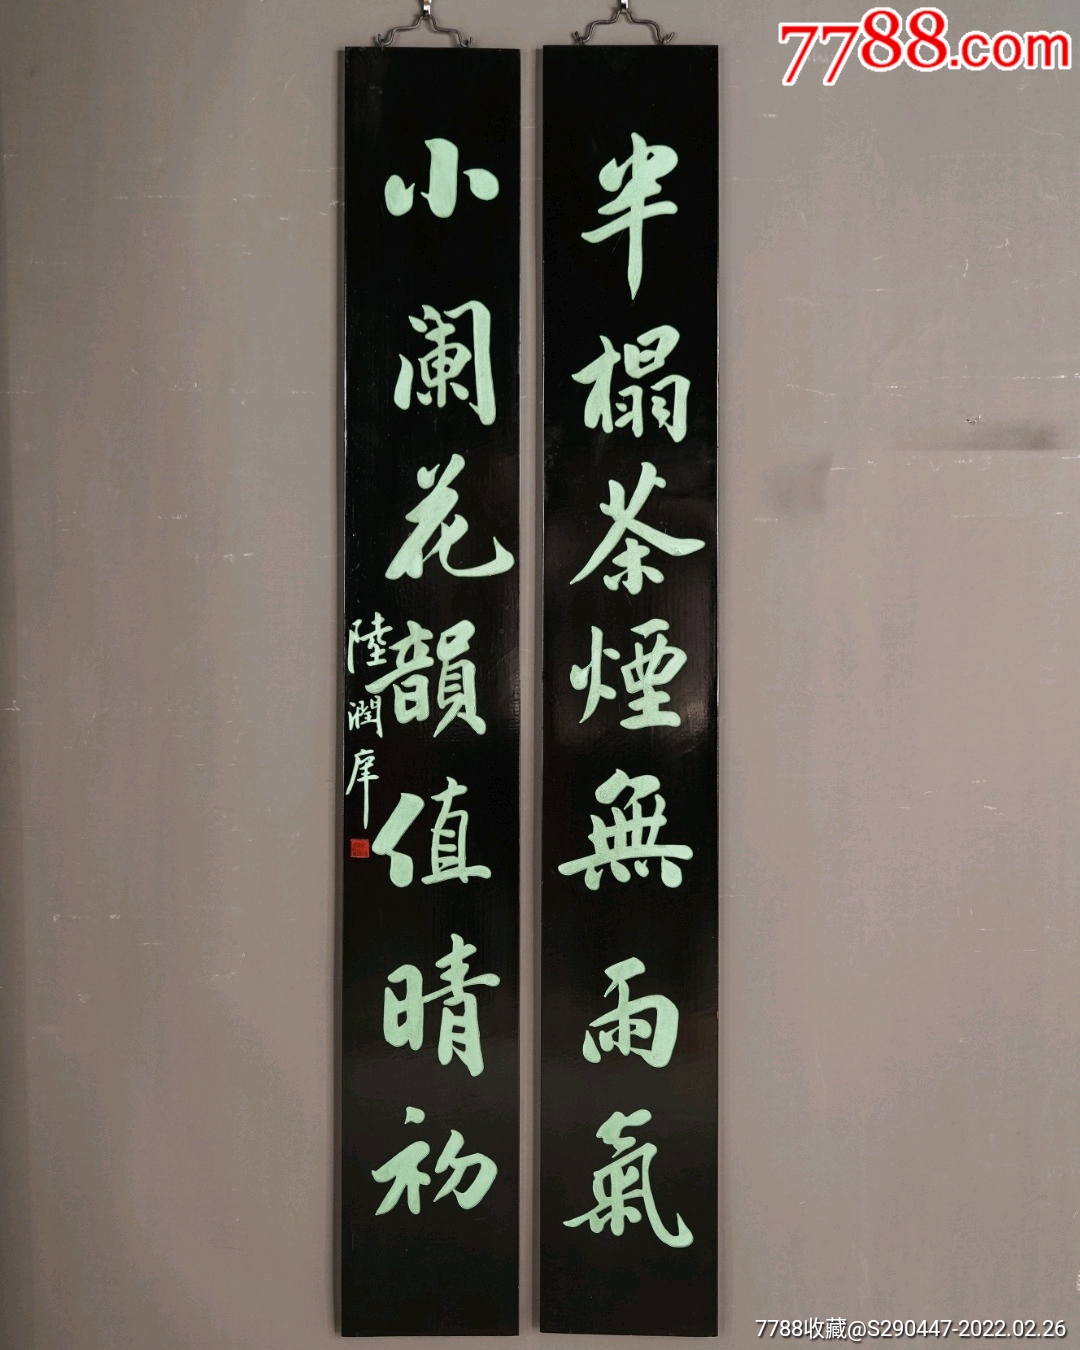 7788.com
半榻茶煙無雨氣
小阑花韻值晴初
陸潤庠
7788收藏@S290447-2022.02.26